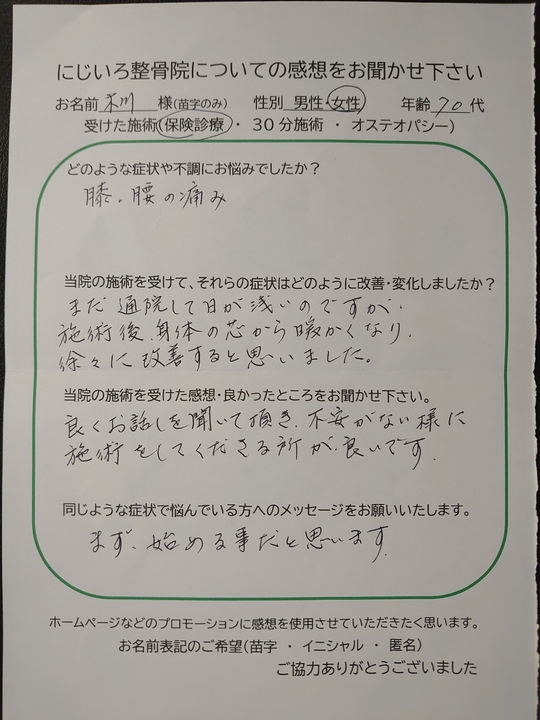 にじいろ整骨院についての感想をお聞かせ下さい
お名前 様(苗字のみ) 性別 男性・女性 年齢 70 代
受けた施術(保険診療・30分施術・オステオパシー)
どのような症状や不調にお悩みでしたか?
膝、腰の痛み
当院の施術を受けて、それらの症状はどのように改善・変化しましたか?
まだ通院して日が浅いのですが、
施術後、身体の芯から暖かくなり、
徐々に改善すると思いました。
当院の施術を受けた感想・良かったところをお聞かせ下さい。
良くお話しを聞いて頂き、不安がない様に
施術をしてくださる所が、良いです。
同じような症状で悩んでいる方へのメッセージをお願いいたします。
まず、始める事だと思います。
ホームページなどのプロモーションに感想を使用させていただきたく思います。
お名前表記のご希望(苗字・イニシャル・匿名)
ご協力ありがとうございました